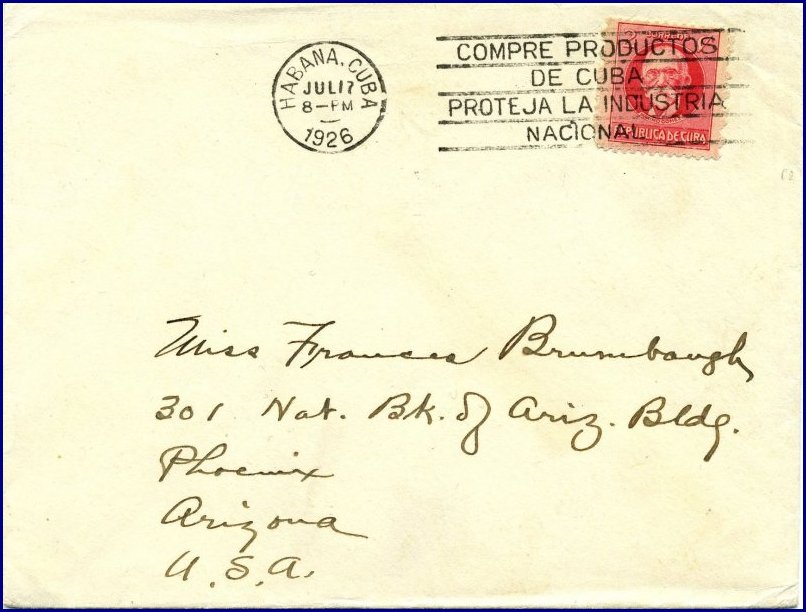 HABANA, CUBA
JUL 17
8-PM
1926
COMPRE PRODUCTOS
DE CUBA
PROTEJA LA INDUSTRIA
NACIONAL
REPUBLICA DE CUBA
Miss Frances Brumbaugh
301 Nat. Bk. of Ariz. Bldg.
Phoenix
Arizona
U.S.A.